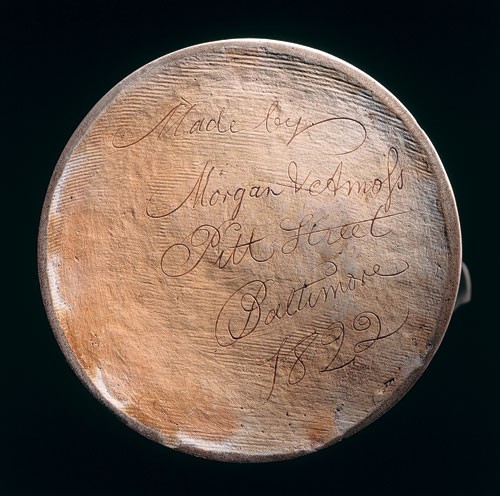 Made by
Morgan & Amoss
Pitt Street
Baltimore
1822